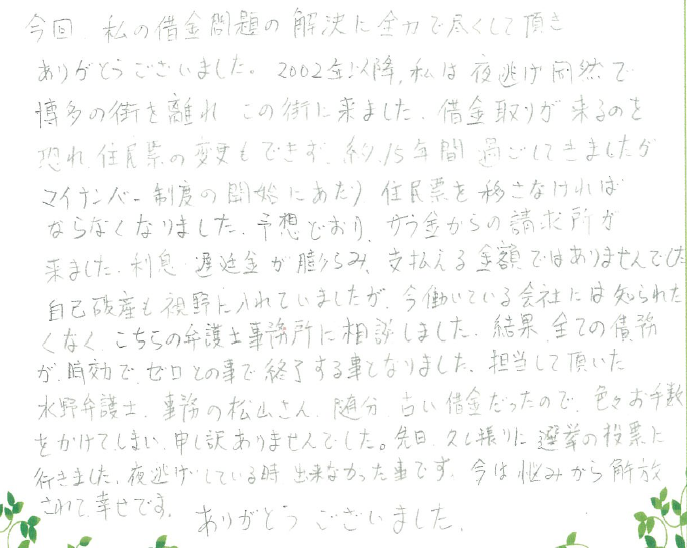 今回、私の借金問題の解決に全力で尽くして頂き
ありがとうございました。2002年以降、私は夜逃げ同然で
博多の街を離れ この街に来ました、借金取りが来るのを
恐れ、住民票の変更もできず、約、15年間 過ごしてきましたが
マイナンバー制度の開始にあたり 住民票を移さなければ
ならなくなりました、予想どおり、サラ金からの請求所が
来ました、利息、遅延金が膨らみ、支払える金額ではありませんでした
自己破産も視野に入れていましたが、今働いている会社には知られた
くなく、こちらの弁護士事務所に相談しました、結果、全ての債務
が、時効で、ゼロとの事で終了する事となりました、担当して頂いた
水野弁護士、事務の松山さん、随分、古い借金だったので、色々お手数
をかけてしまい、申し訳ありませんでした。先日、久し振りに選挙の投票に
行きました、夜逃げしている時、出来なかった事です、今は悩みから解放
されて、幸せです。
ありがとうございました、